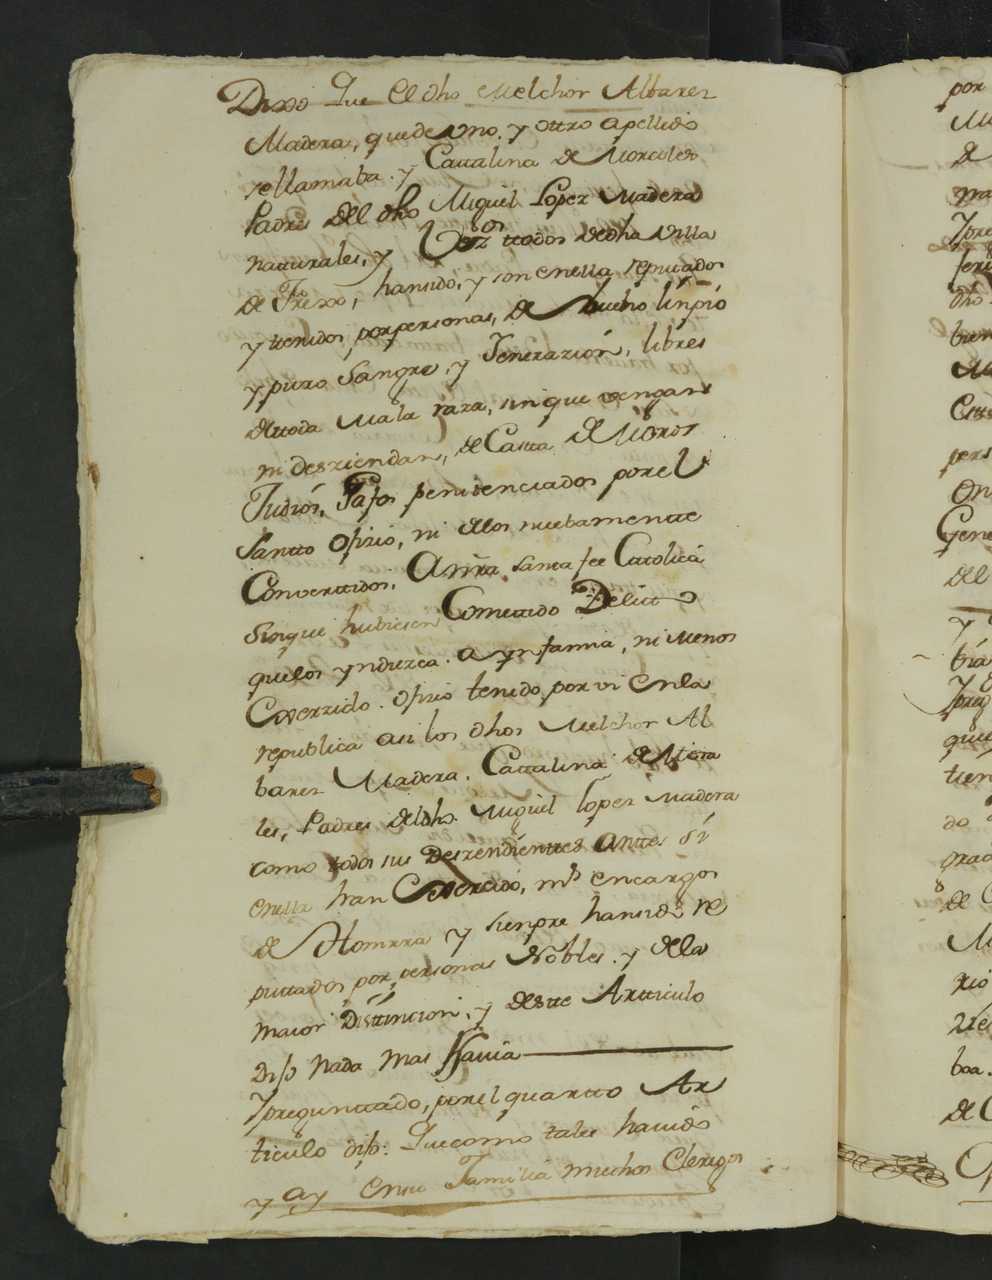 Dixo Que el dho Melchor Albares
Madera, que de uno, y ottro apellido
se llamaba. y Cattalina de Morales
Padres del dho Miguel Lopez Madera
natturales, y Vezos ttodos dedha villa
de Frexo, han sido, y son en ella reputtados
y ttenidos, por personas, de mucho linpio
y puro Sangre, y Jenerazion, libres
de ttoda mala raza, sin que vengan
ni desziendan, de Casta de Moros
Judios, Pajos penitenciados por el
Santto Ofizio, ni de los nuebamentte
Converttidos. A nra Santa fee Catolica
Sin que hubiesen Comettido Delitto
que los yndUzca. a ynfamia, ni menos
Exerzido. ofizio tenido por vi en la
republica asi los dhos Melchor Al
bares Madera. Cattalina de Mora
les, Padres del dho. Miguel Lopez Madera
como todos sus Deszendienttes Anttes si
en ella han Exerzido, ms encargos
de Homrra y sienpre han sido re
puttados por personas Nobles. y de la
maior Disttincion, y deste Artticulo
Dijo nada mas savia
Y pregunttado, por el quartto Ar
ticulo dijo: Que como tales ha havido
y ay en su Familia muchos Clerigos
por
de
dho
pers
Gene
del
y
tien
do
de
rio
boa.
de C